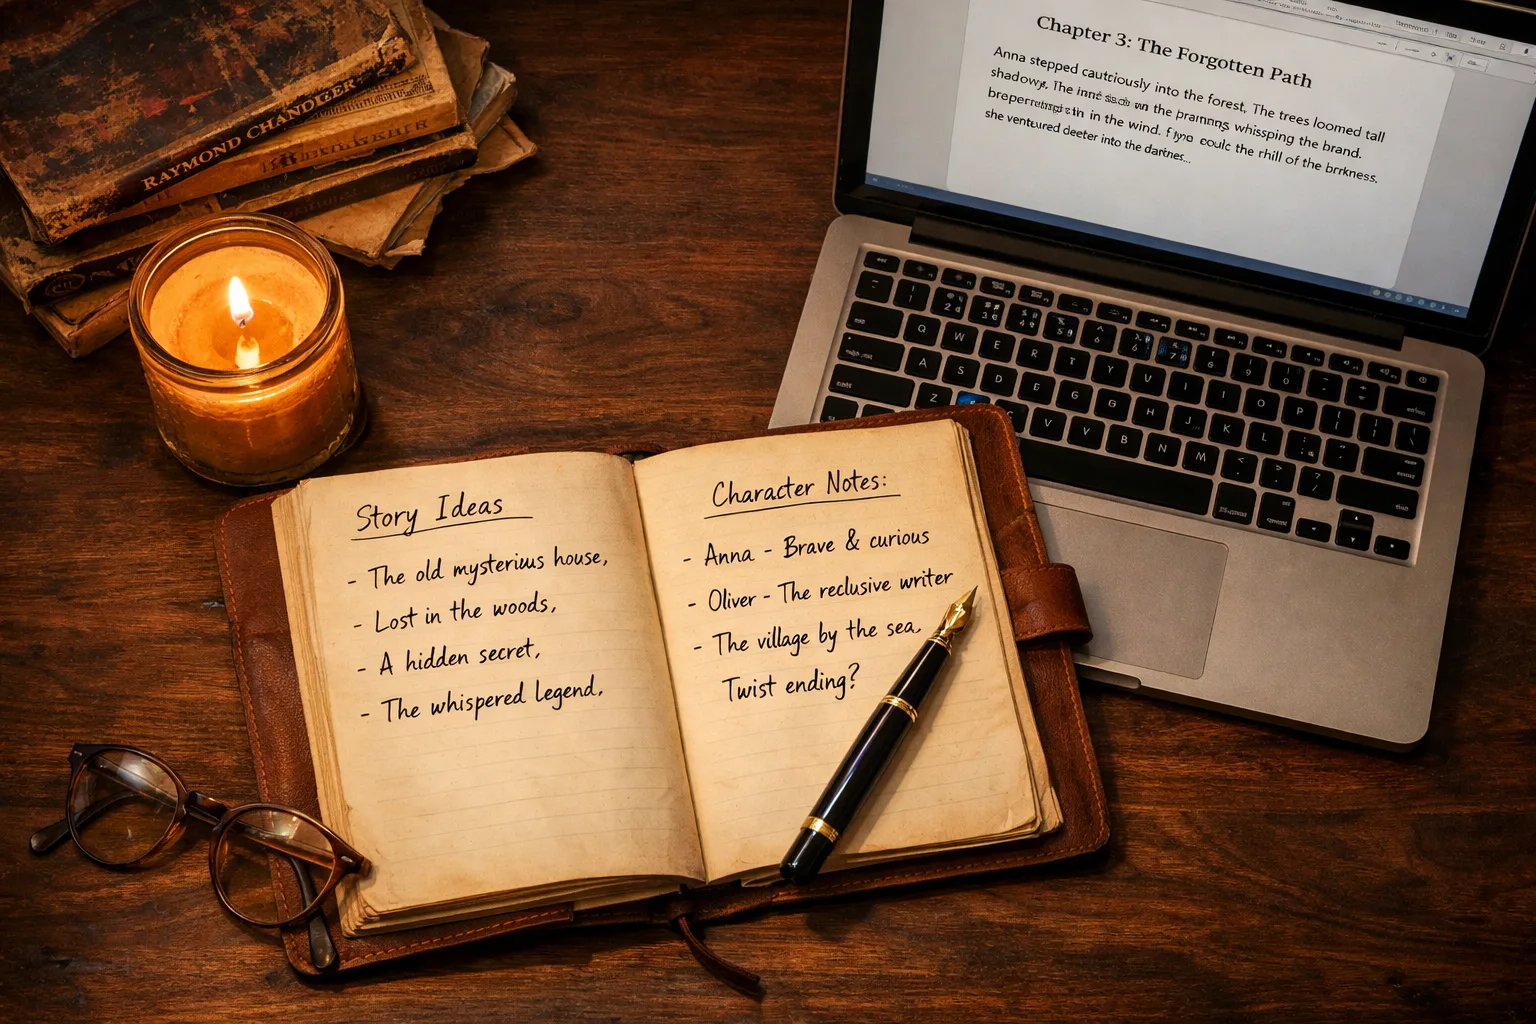 RAYMOND CHANDLER
Chapter 3: The Forgotten Path
Anna stepped cautriously into the forest, The trees loomed tall
shadows, The the whisping the brand.
in the wind. the rhill of the
she ventured deeter into the darknes...
Story Ideas
- The old mysterius house,
- Lost in the woods,
- A hidden secret,
- The whispered legend,
Character Notes:
- Anna - Brave & curious
- Oliver - The reclusive writer
- The village by the sea,
Twist ending?